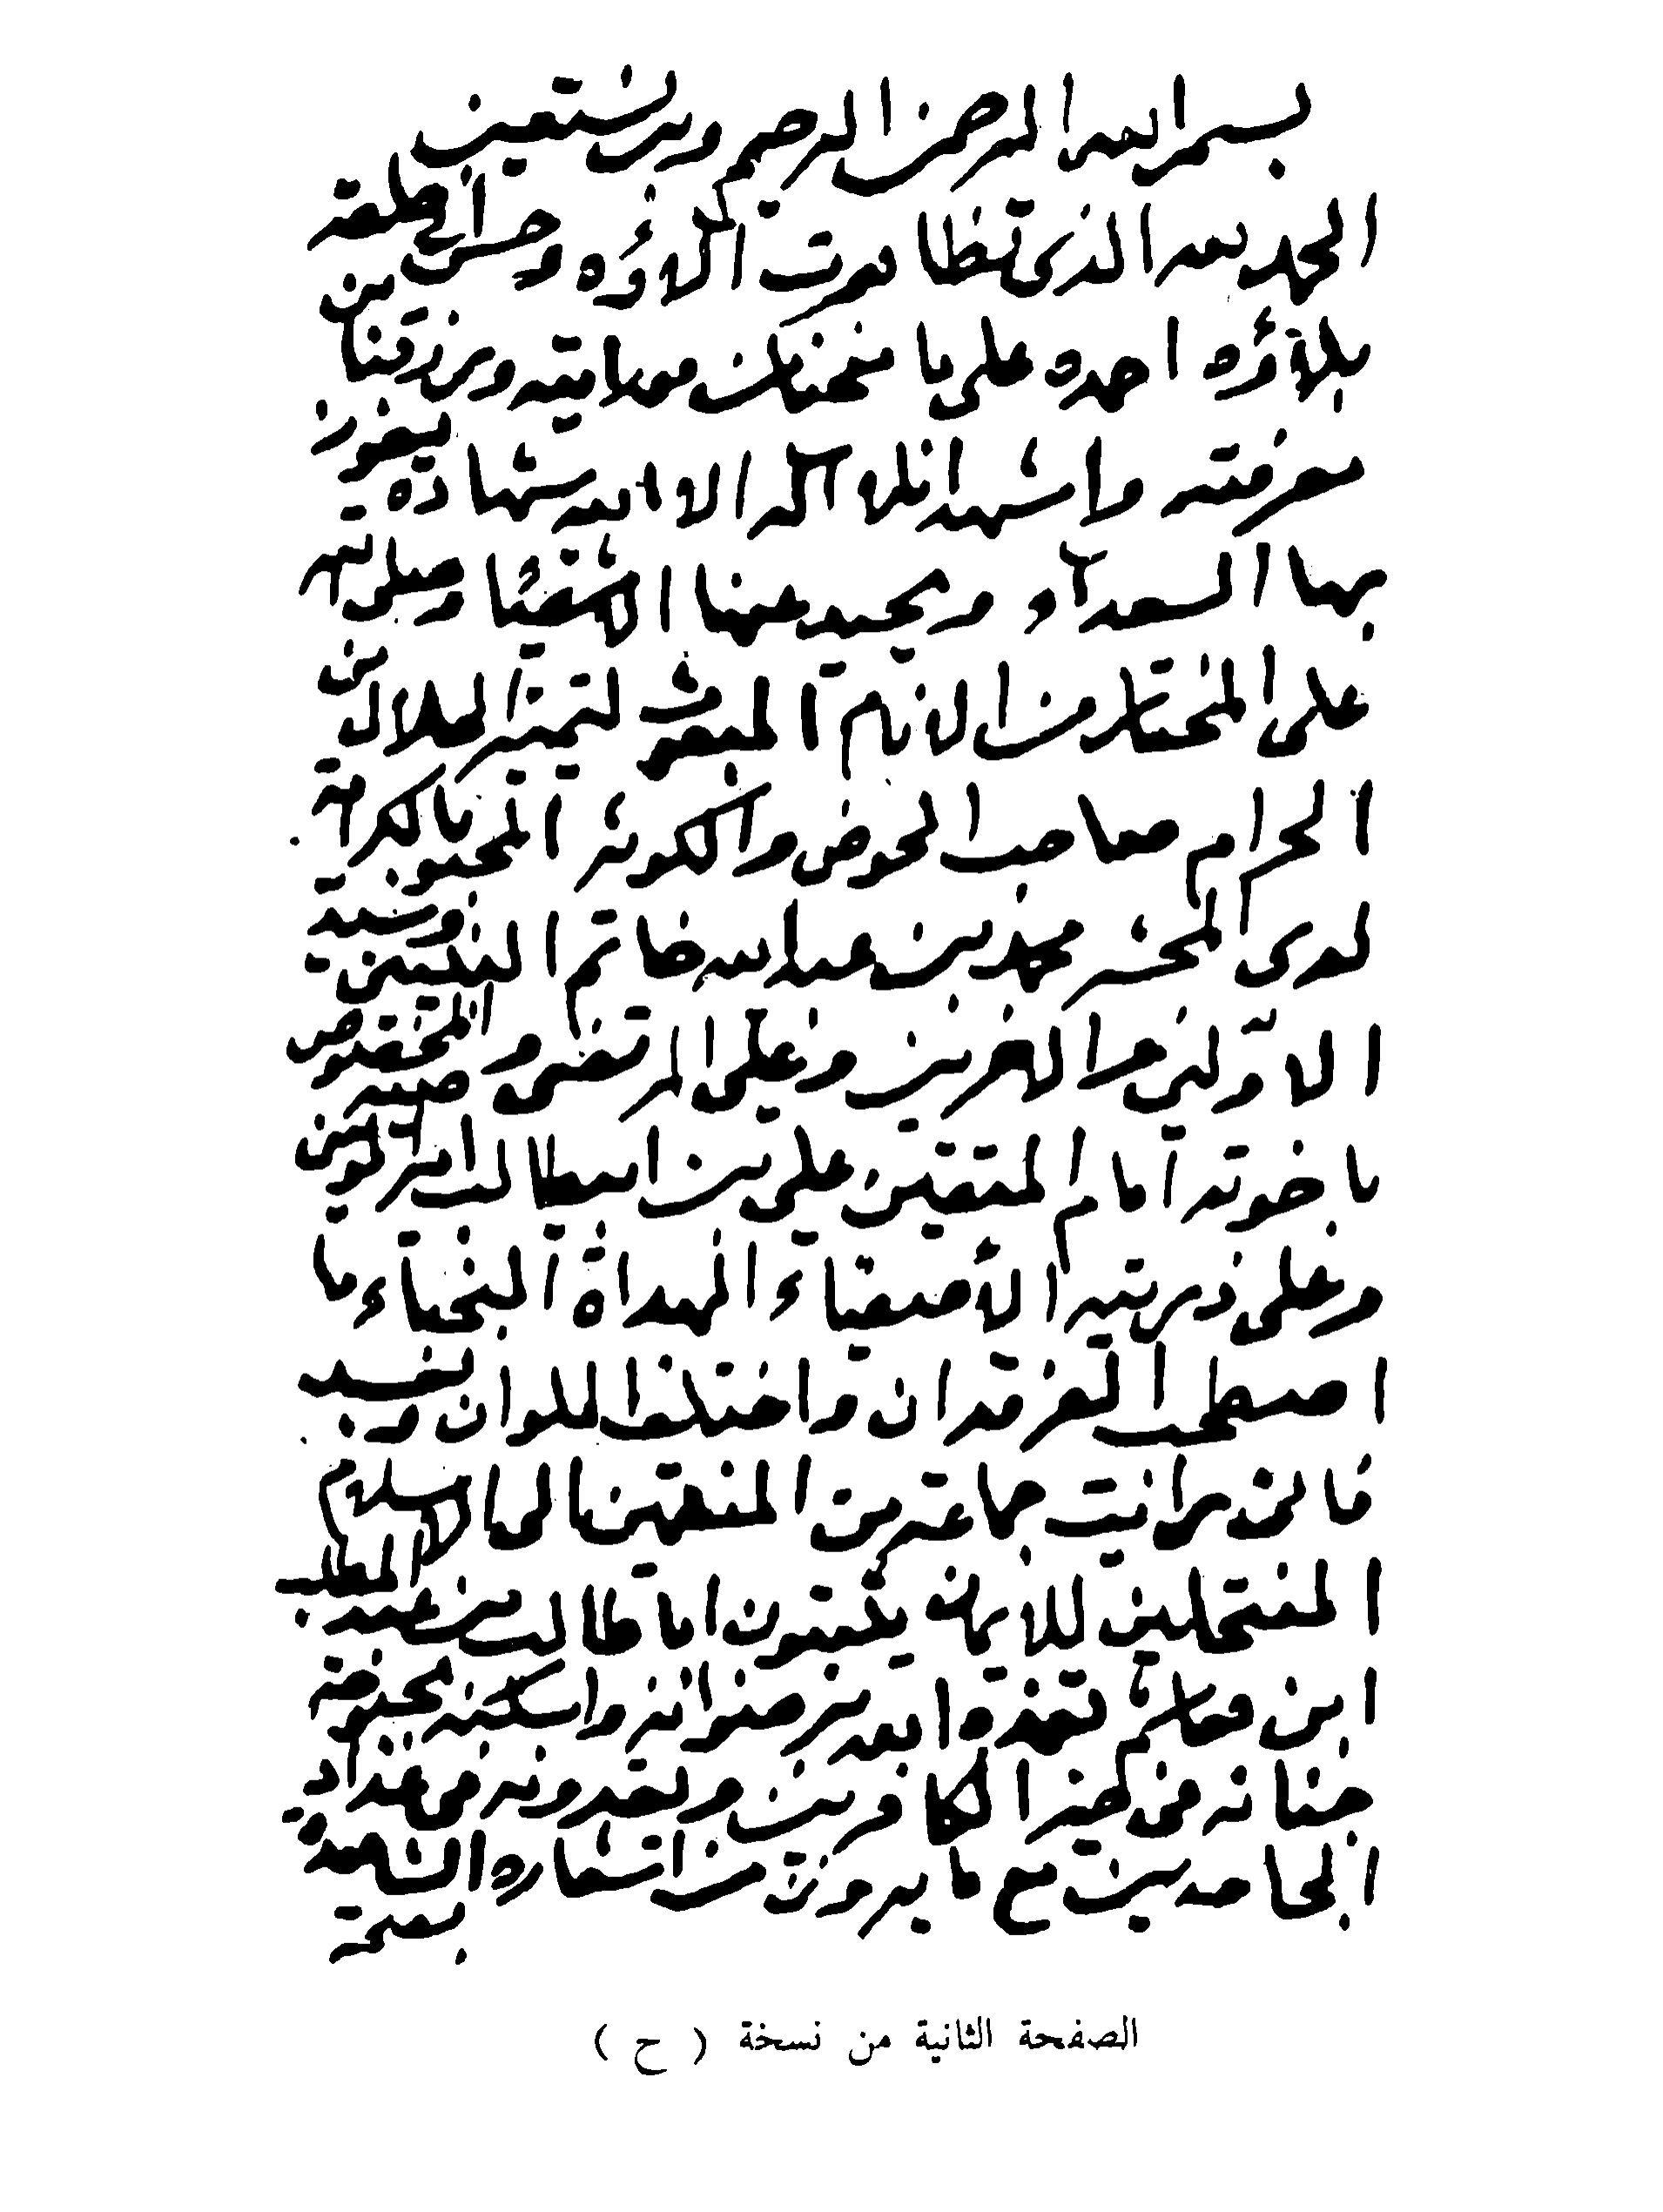 بسم الله الرحمن الرحيم وبه نستعين
الحمد لله الذي تظاهرت الاؤه وحسن الى خلقه
بلاؤه احمده على ما منحنا من هدايته ورزقنا من
معرفته واشهد ان لا اله الا الله شهادة يفوز
بها السعداء ويحيد عنها الاشقيا وصلوته
على المختار من الانام المبعوث لتمييز الحلال من
الحرام صاحب الحوض والكوثر المحبو بالكرامة
لدى المحشر محمد بن عبد الله خاتم النبيين وسيد
الاولين والاخرين وعلى المرتضى وصيه المخصوص
باخوته امام المتقين علي بن ابي طالب امير المومنين
وعلى ذريته الأصفياء الهداة النجباء ما
اصطحب الفرقدان واختلف الملوان وبعد
فاني رايت جماعة من المنتمين الى الاسلام
المنتحلين للايمان يكفرون ابا طالب بن عبد المطلب
ابن هاشم تغمده الله برضوانه واسكنه بحبوحة
جنانه في حيز الكافرين ويعدونه في عداد
الجاحدين مع ما يروون من اشعاره الشاهدة
بصحة
الصفحة الثانية من نسخة ( ح )